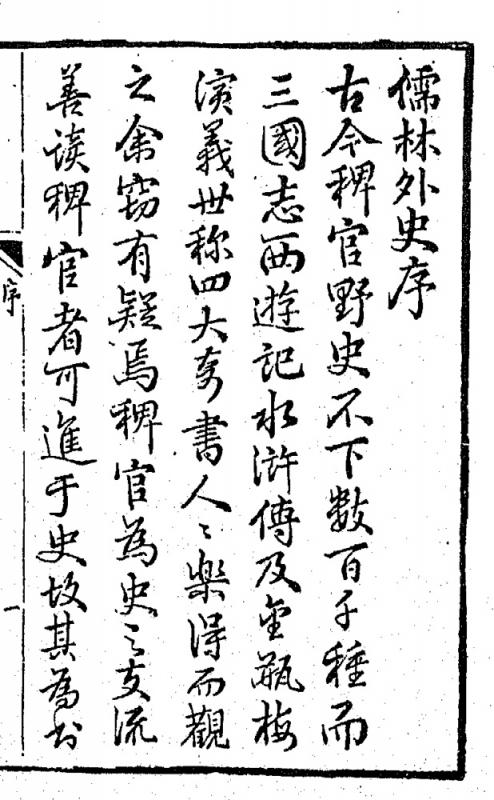 儒林外史序
古今稗官野史不下數百千種而
三國志西遊記水滸傳及金瓶梅
演義世称四大奇書人〻樂得而觀
之余竊有疑焉稗官為史之支流
善讀稗官者可進于史故其為書
序
一